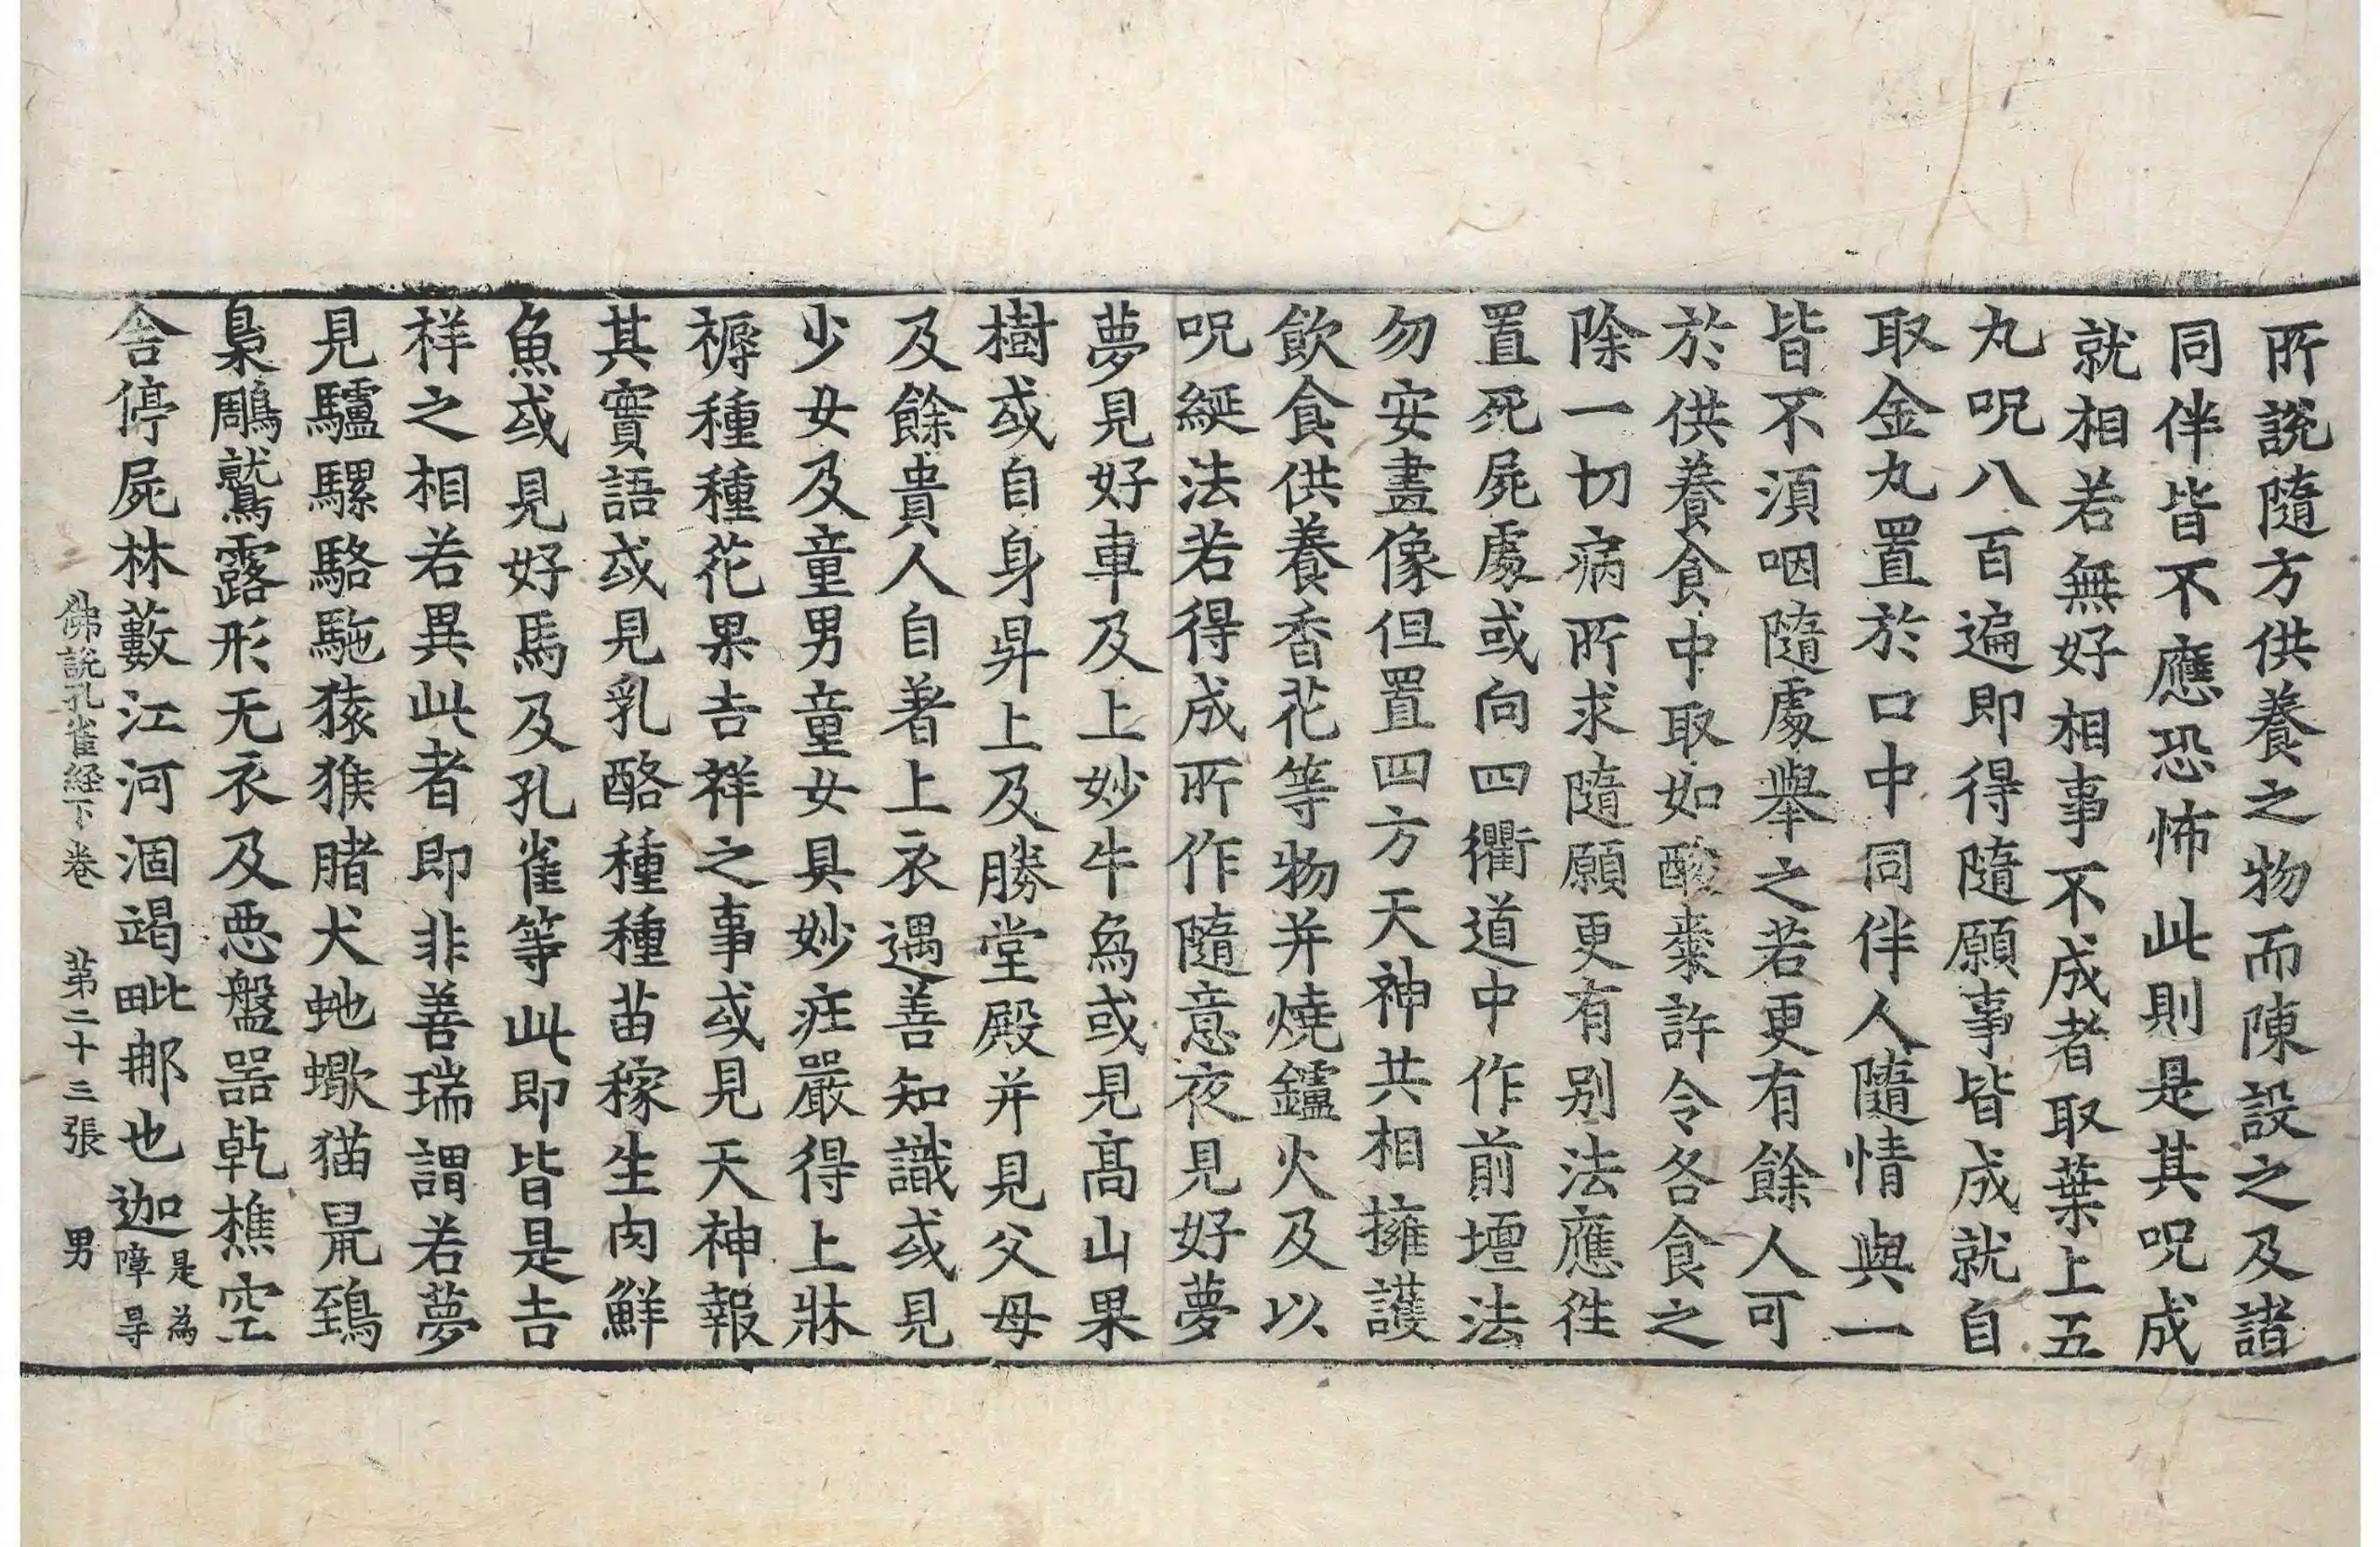 所說隨方供養之物而陳設之及諸
同伴皆不應恐怖此則是其呪成
就相若無好相事不成者取葉上五
丸呪八百遍即得隨願事皆成就自
取金丸置於口中同伴人隨情與一
皆不湏咽隨處舉之若更有餘人可
於供養食中取如酸棗許令各食之
除一切病所求隨願更有別法應往
置死屍處或向四衢道中作前壇法
勿安畫像但置四方天神共相擁護
飲食供養香花等物并燒鑪火及以
呪綖法若得成所作隨意夜見好夢
夢見好車及上妙牛為或見高山果
樹或自身昇上及勝堂殿并見父母
及餘貴人自著上衣遇善知識或見
少女及童男童女具妙莊嚴得上牀
褥種種花果吉祥之事或見天神報
其實語或見乳酪種種苗稼生肉鮮
魚或見好馬及孔雀等此即皆是吉
祥之相若異此者即非善瑞謂若夢
見驢騾駱駞猿猴腤犬虵蠍猫鼠鵄
梟鵰鷲露形无衣及惡盤器乾樵空
舍停屍林藪江河涸竭毗那也迦是為障㝵
佛說孔雀経下卷 第二十三張 男